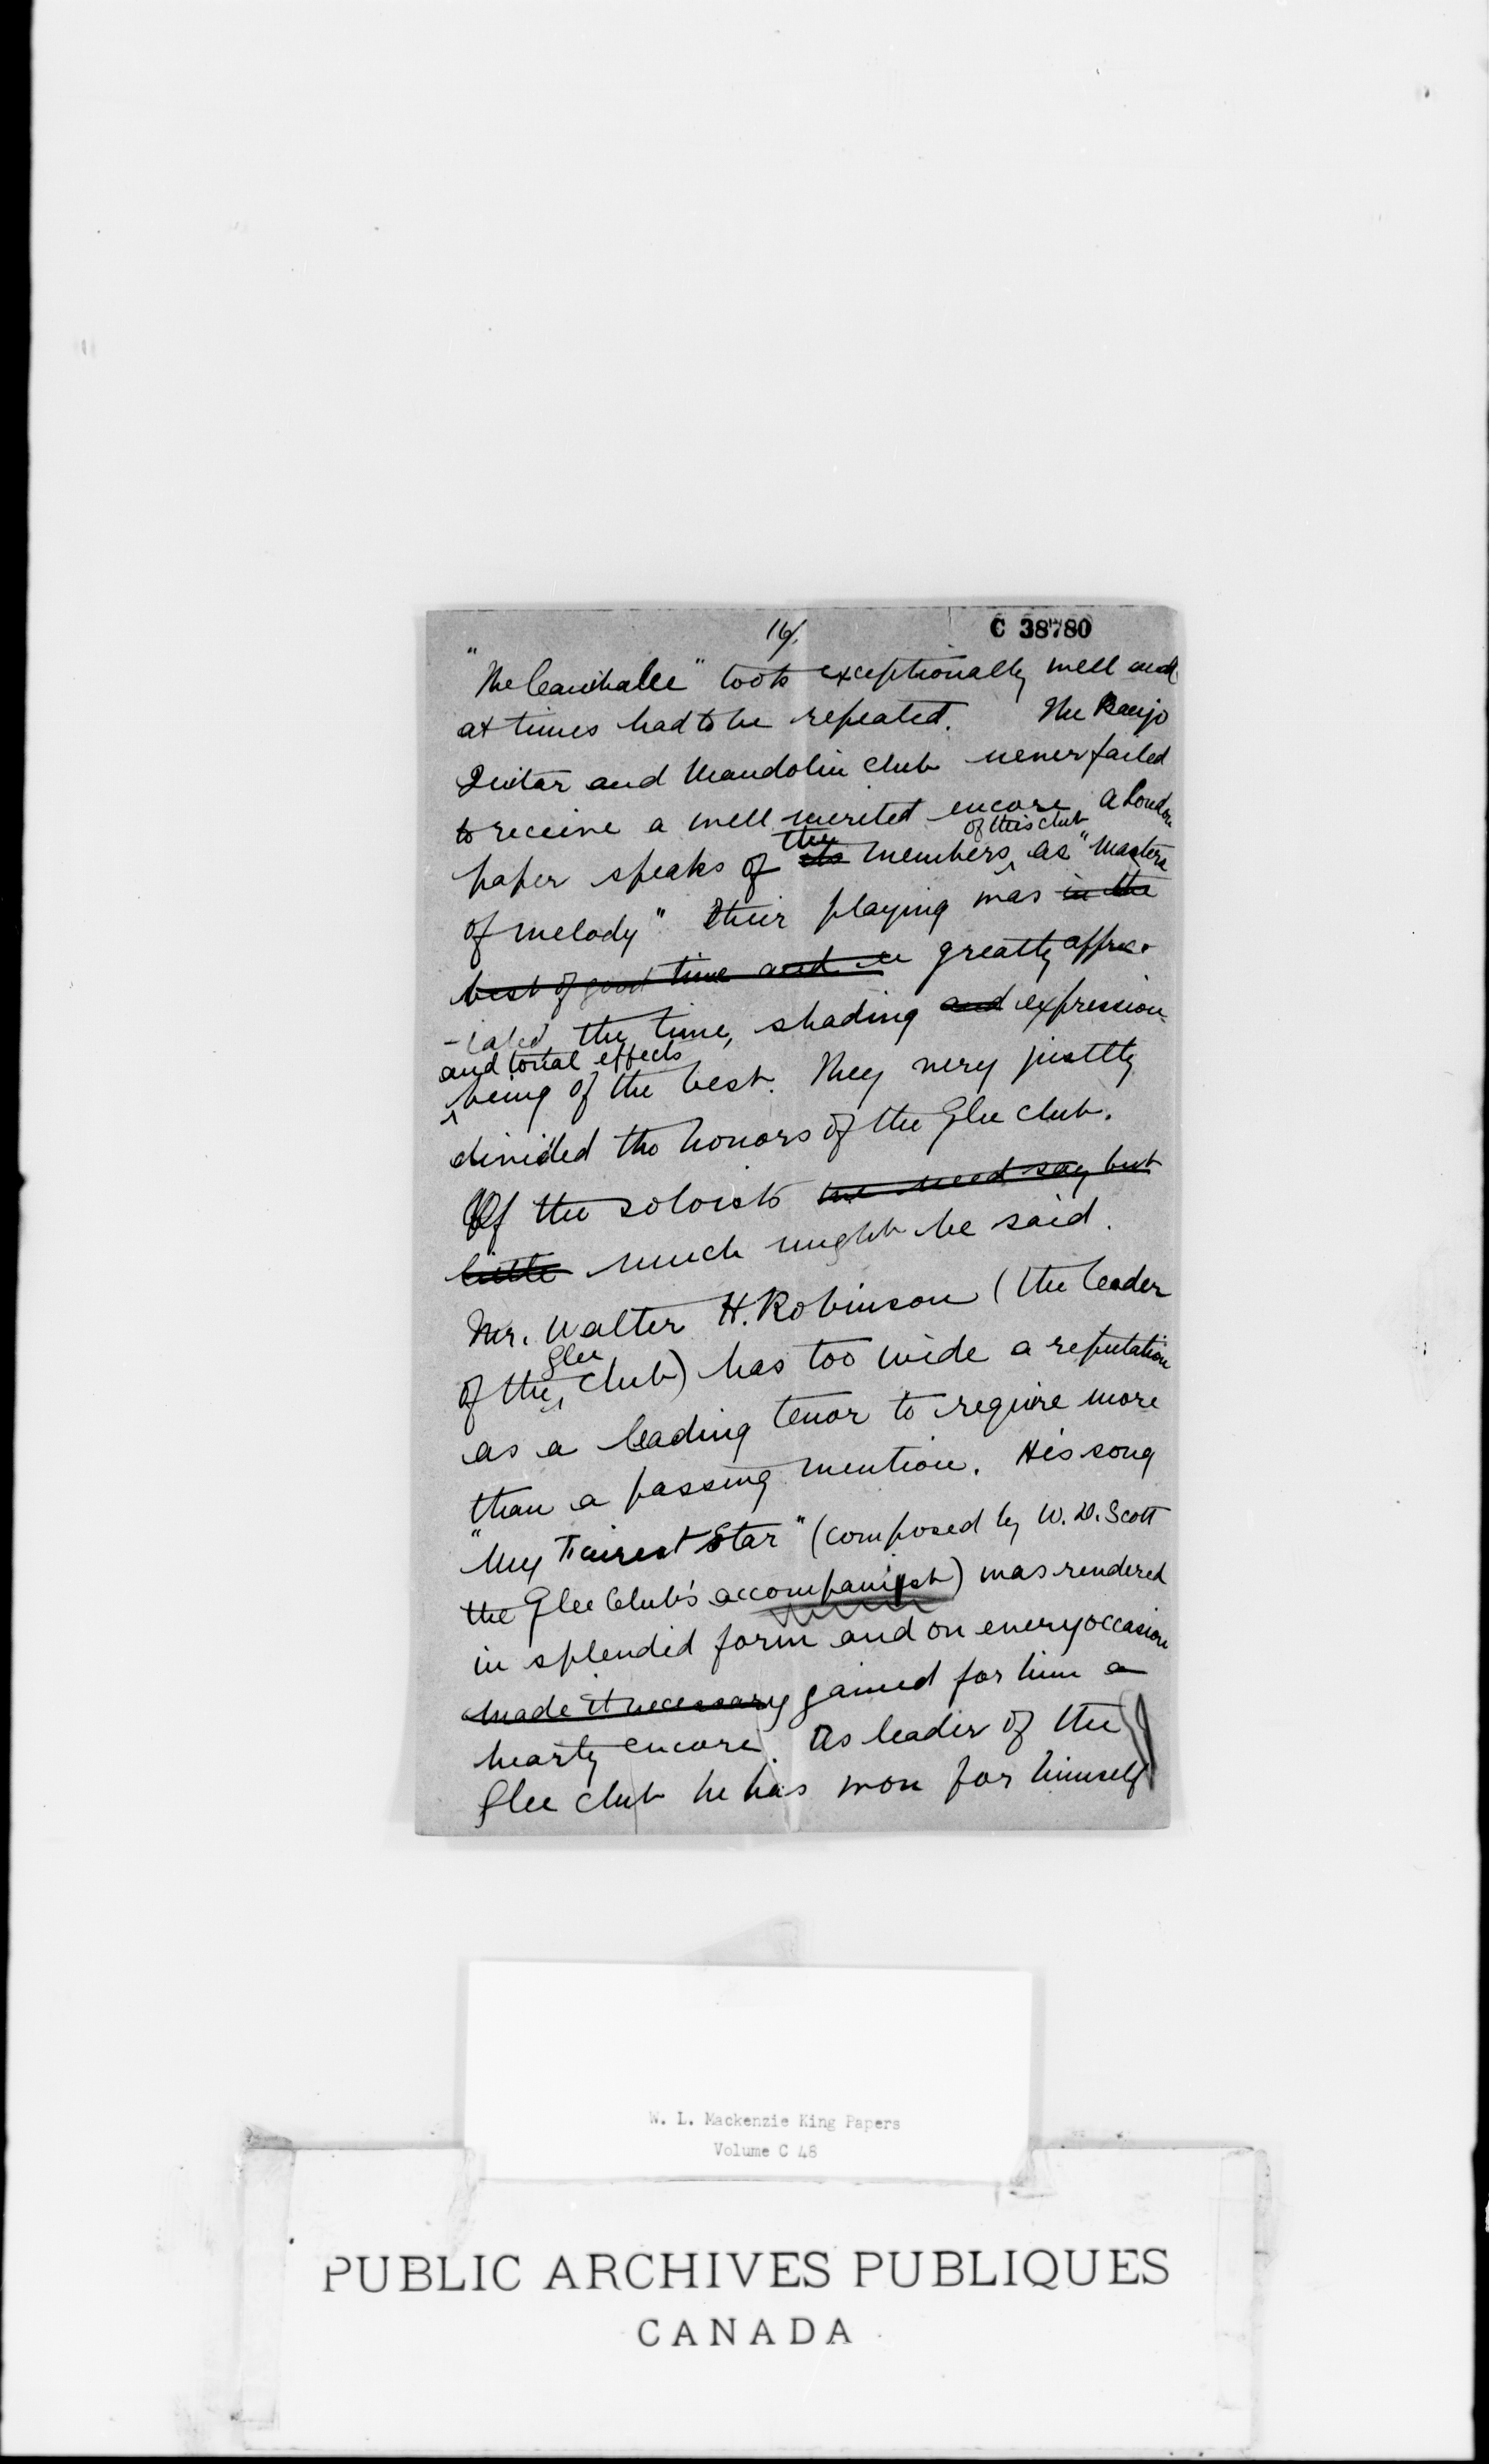 16/.
C 38780
"The Cannibalee" took exceptionally well and
at times had to be repeated. The Banjo
Guitar and Mandolin Club never failed
to receive a well merited encore. A London
paper speaks of its the members of this club as "Masters
of melody" Their playing was in the
best of good time and greatly apprec-
-iated, the time, shading and expression
and tonal effects
being of the best. They very justly
divided the honors of the Glee Club.
Of the soloists we need say but
little much might be said.
Mr. Walter H. Robinson (the leader
of the Glee Club) has too wide a reputation
as a leading tenor to require more
than a passing mention. His song
"My Fairest Star" (composed by W. D. Scott
the Glee Club's accompanist) was rendered
in splendid form and on every occasion
made it necessary gained for him a
hearty encore. As leader of the
Glee club he has won for himself
W. L. Mackenzie King Papers
Volume C 48
PUBLIC ARCHIVES PUBLIQUES
CANADA